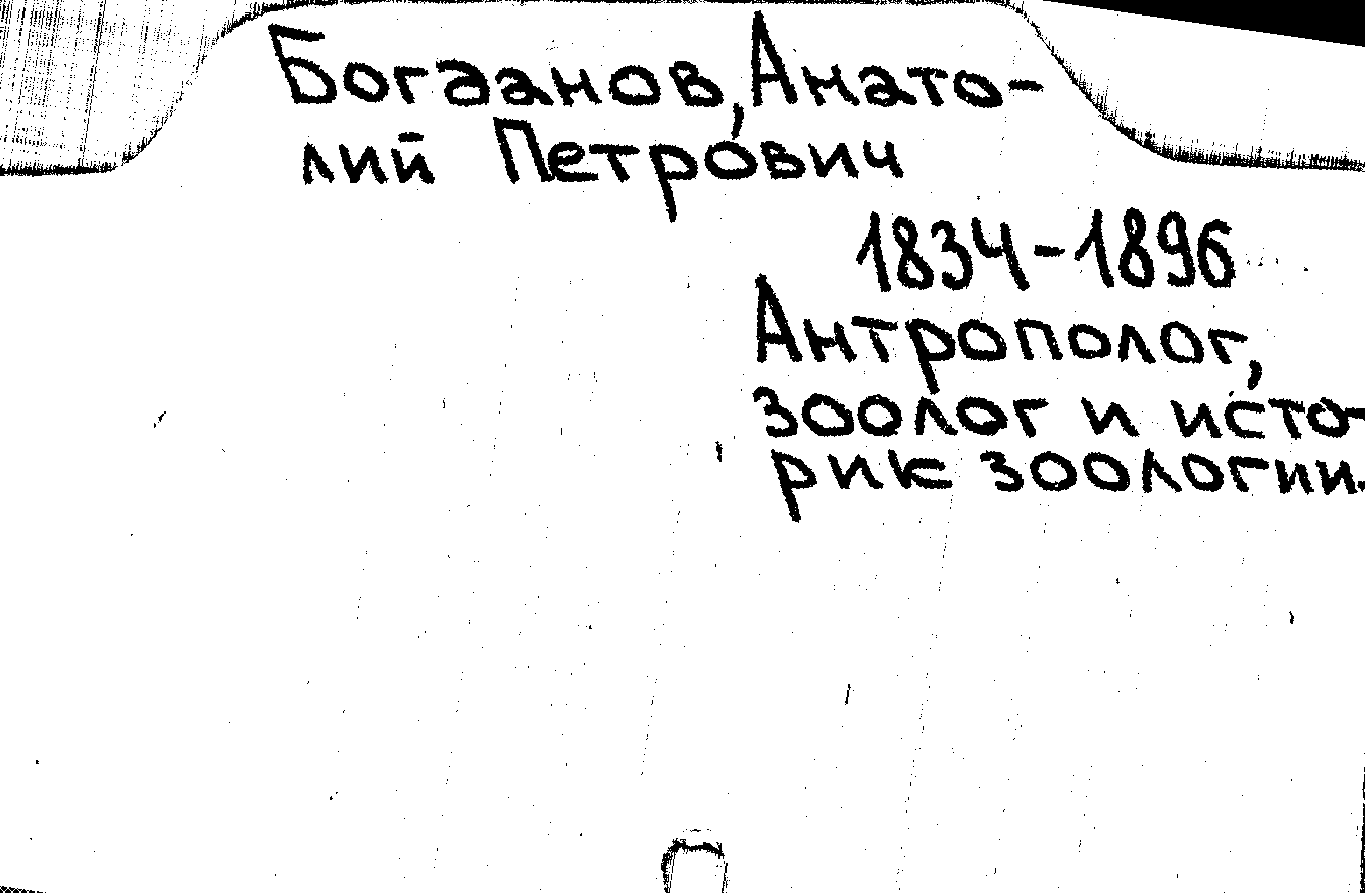 Богданов, Анато-
лий Петрович
1834-1896
Антрополог,
зоолог и исто-
рик зоологии.